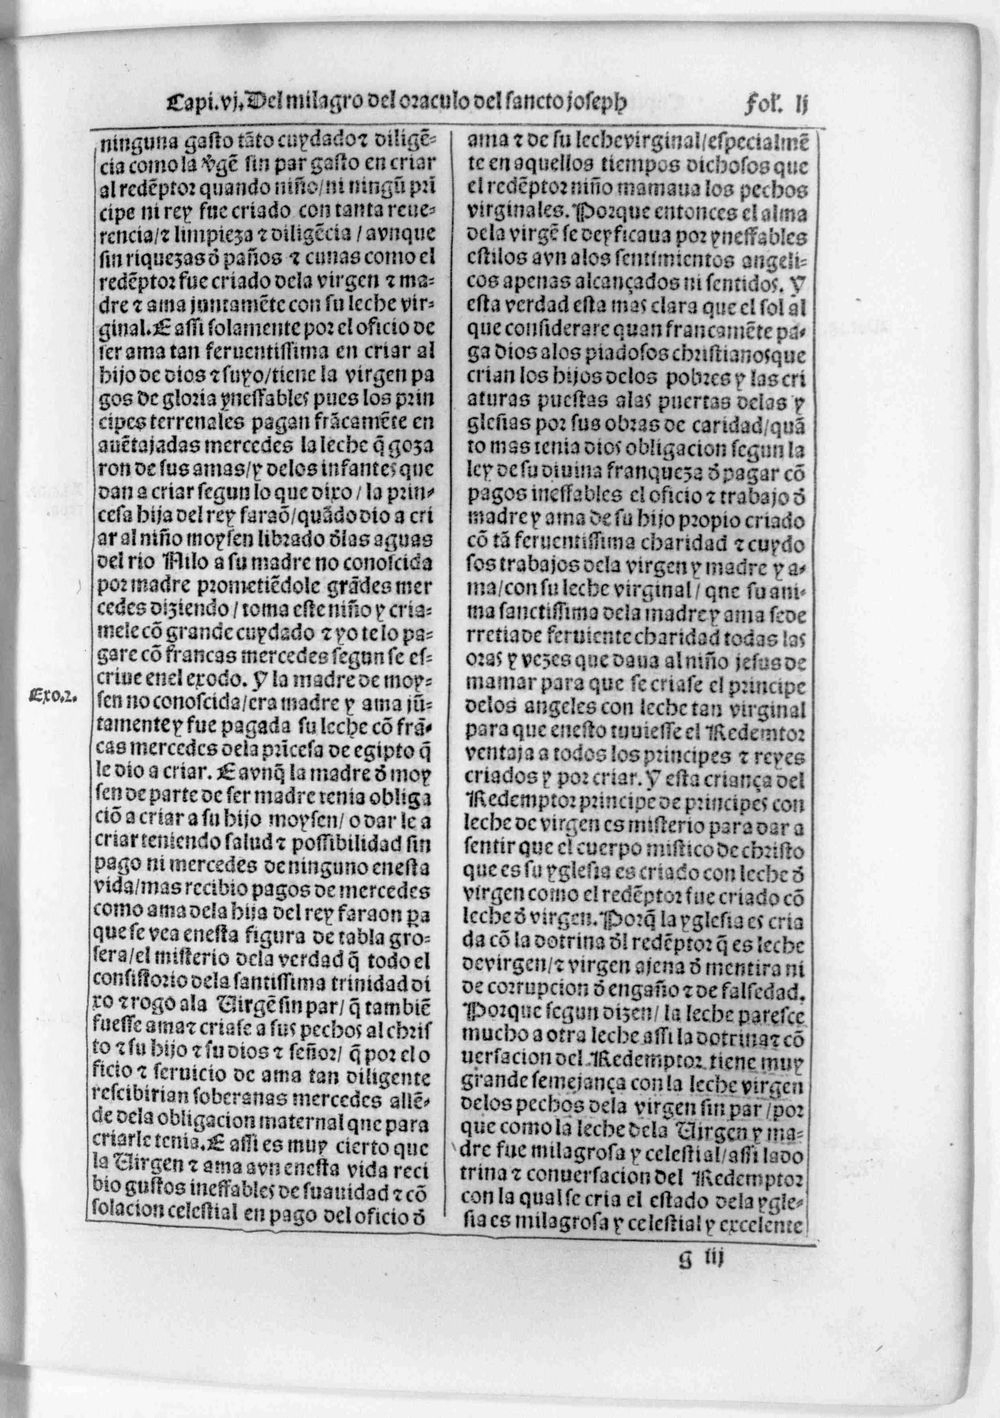 Capi. vj. Del milagro del oraculo del sancto joseph Fol. lj
ninguna gasto tãto cuydado ⁊ diligẽ-
cia como la v̄gẽ sin par gasto en criar
al redẽptor quando niño/ni ningũ prĩ
cipe ni rey fue criado con tanta reue-
rencia/⁊ limpieza ⁊ diligẽcia/avnque
sin riquezas đ paños ⁊ cunas como el
redẽptor fue criado dela virgen ⁊ ma-
dre ⁊ ama juntamẽte con su leche vir-
ginal. E assi solamente por el oficio de
ser ama tan feruentissima en criar al
hijo de dios ⁊ suyo/tiene la virgen pa
gos de gloria yneffables pues los prin
cipes terrenales pagan frãcamẽte en
auẽtajadas mercedes la leche q̃ goza
ron de sus amas/y delos infantes que
dan a criar segun lo que dixo/la prin-
cesa hija del rey faraõ/quãdo dio a cri
ar al niño moysen librado đlas aguas
del rio Nilo a su madre no conoscida
por madre prometiẽdole grãdes mer
cedes diziendo/toma este niño y cria-
mele cõ grande cuydado ⁊ yo te lo pa-
gare cõ francas mercedes segun se es-
criue enel exodo. Y la madre de moy-
Exo.2.
sen no conoscida/era madre y ama jũ-
tamente y fue pagada su leche cõ frã-
cas mercedes dela prĩcesa de egipto q̃
le dio a criar. E avnq̃ la madre đ moy
sen de parte de ser madre tenia obliga
ciõ a criar a su hijo moysen/o dar le a
criar teniendo salud ⁊ possibilidad sin
pago ni mercedes de ninguno enesta
vida/mas recibio pagos de mercedes
como ama dela hija del rey faraon p̱a
que se vea enesta figura de tabla gro-
sera/el misterio dela verdad q̃ todo el
consistorio dela santissima trinidad di
xo ⁊ rogo ala Uirgẽ sin par/q̃ tambiẽ
fuesse ama ⁊ criase a sus pechos al chris
to ⁊ su hijo ⁊ su dios ⁊ señor/q̃ por el o
ficio ⁊ seruicio de ama tan diligente
rescibirian soberanas mercedes allẽ-
de dela obligacion maternal que para
criarle tenia. E assi es muy cierto que
la Uirgen ⁊ ama avn enesta vida reci
bio gustos ineffables de suauidad ⁊ cõ
solacion celestial en pago del oficio đ
ama ⁊ de su leche virginal/especialmẽ
te en aquellos tiempos dichosos que
el redẽptor niño mamaua los pechos
virginales. Porque entonces el alma
dela virgẽ se deyficaua por yneffables
estilos avn alos sentimientos angeli-
cos apenas alcançados ni sentidos. Y
esta verdad esta mas clara que el sol al
que considerare quan francamẽte pa-
ga dios alos piadosos christianos que
crian los hijos delos pobres y las cri
aturas puestas alas puertas delas y
glesias por sus obras de caridad/quã
to mas tenia dios obligacion segun la
ley de su diuina franqueza đ pagar cõ
pagos ineffables el oficio ⁊ trabajo đ
madre y ama de su hijo propio criado
cõ tã feruentissima charidad ⁊ cuydo
sos trabajos dela virgen y madre y a-
ma/con su leche virginal/que su ani-
ma sanctissima dela madre y ama se de
rretia de feruiente charidad todas las
oras y vezes que daua al niño jesus de
mamar para que se criase el principe
delos angeles con leche tan virginal
para que enesto tuuiesse el Redemtor
ventaja a todos los principes ⁊ reyes
criados y por criar. Y esta criança del
Redemptor principe de principes con
leche de virgen es misterio para dar a
sentir que el cuerpo mistico de christo
que es su yglesia es criado con leche đ
virgen como el redẽptor fue criado cõ
leche đ virgen. Porq̃ la yglesia es cria
da cõ la dotrina đl redẽptor q̃ es leche
de virgen/⁊ virgen ajena đ mentira ni
de corrupcion đ engaño ⁊ de falsedad.
Porque segun dizen/la leche paresce
mucho a otra leche assi la dotrina ⁊ cõ
uersacion del Redemptor tiene muy
grande semejança con la leche virgen
delos pechos dela virgen sin par/por
que como la leche dela Uirgen y ma-
dre fue milagrosa y celestial/assi la do
trina ⁊ conuersacion del Redemptor
con la qual se cria el estado dela ygle-
sia es milagrosa y celestial y excelente
g iij